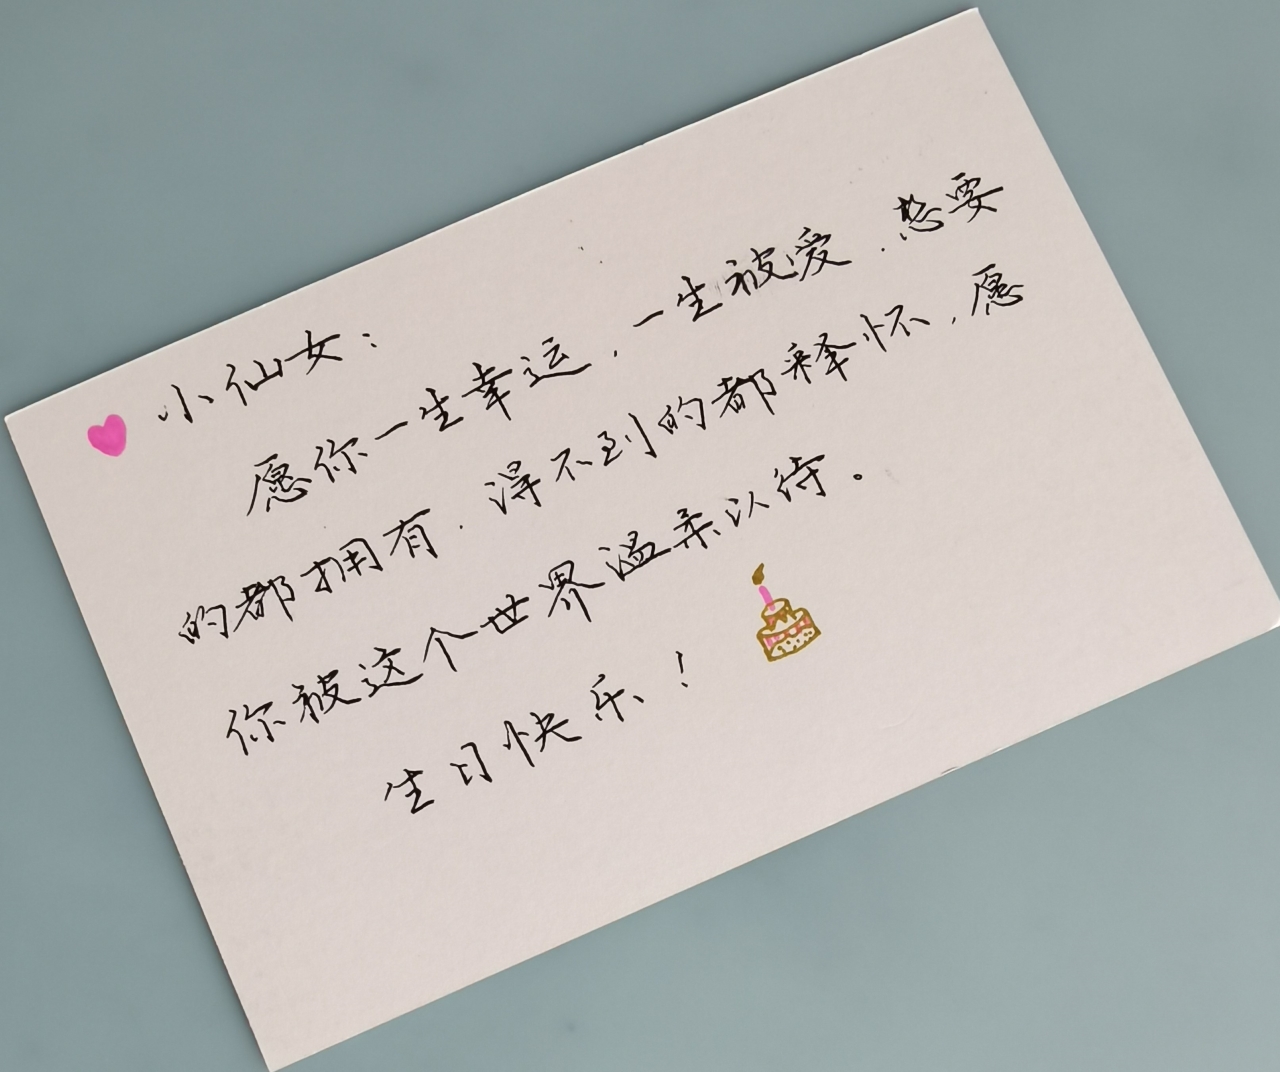 小仙女：
愿你一生幸运，一生被爱，想要
的都拥有，得不到的都释怀，愿
你被这个世界温柔以待。
生日快乐！